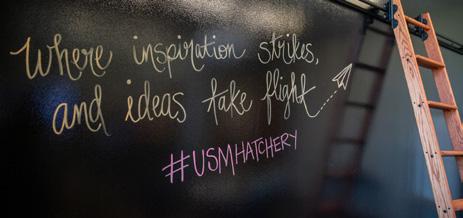 Where inspiration strikes,
and ideas take flight
#USMHATCHERY